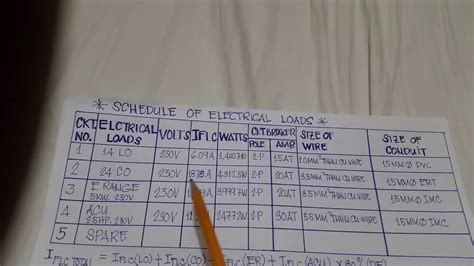 * SCHEDULE OF ELECTRICAL LOADS *
CKT. NO. ELCTRICAL LOADS VOLTS IFLC WATTS CKT. BREAKER POLE AMP. SIZE OF WIRE SIZE OF CONDUIT
1 14 LO 230V 6.09A 2P 15AT THHN CU WIRE 15MMØ PVC
2 24 CO 230V 18.78A 2P 20AT 3.5MM² THHN CU WIRE 15MMØ EMT
3 E. RANGE 5KW. 230V 230V 2P THHN CU WIRE 15MMØ IMC
4 ACU 2.5HP. 230V 230V 2P 30AT 5.5MM² THHN CU WIRE 15MMØ IMC
5 SPARE
I FLC TOTAL = IFLC(LO) + IFLC(CO) IFLC(ER) + IFLC(ACU) × 80%